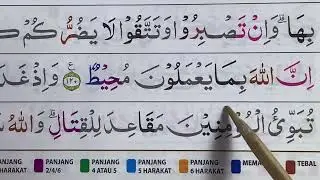 بِهَاۗ وَاِنْ تَصْبِرُوْا وَتَتَّقُوْا لَا يَضُرُّكُمْ كَ
اِنَّ اللّٰهَ بِمَا يَعْمَلُوْنَ مُحِيْطٌ ࣖ ١٢٠ وَاِذْ غَدَ
تُبَوِّئُ الْمُؤْمِنِيْنَ مَقَاعِدَ لِلْقِتَالِۗ وَاللّٰهُ
PANJANG 2/4/6 PANJANG 4 ATAU 5 PANJANG 5 HARAKAT PANJANG 6 HARAKAT TEBAL